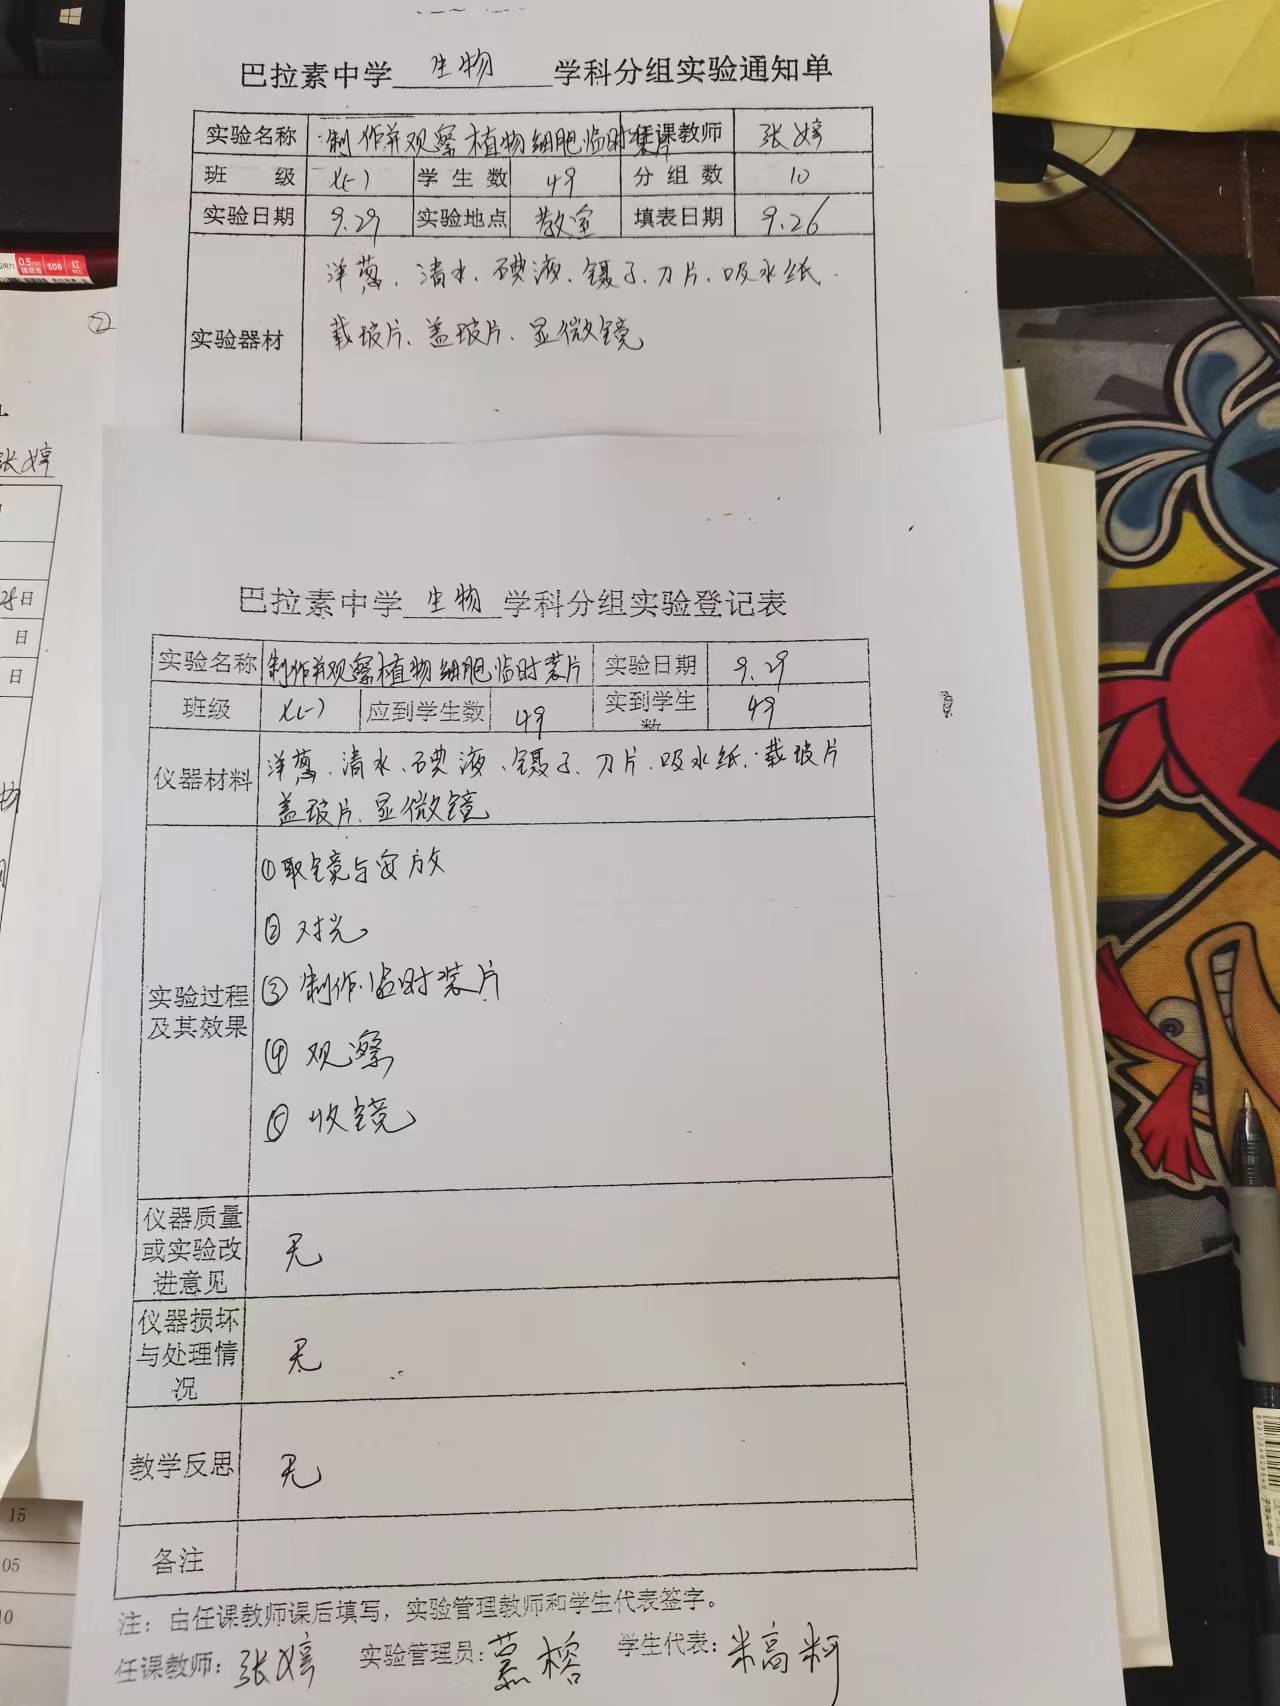 巴拉素中学 生物 学科分组实验通知单
实验名称 制作并观察植物细胞临时装片 任课教师 张婷
班 级 七(一) 学生数 49 分组数 10
实验日期 9.29 实验地点 教室 填表日期 9.26
实验器材 洋葱、清水、碘液、镊子、刀片、吸水纸、
载玻片、盖玻片、显微镜
②
张婷
日
日
日
0.5mm 508 红
巴拉素中学 生物 学科分组实验登记表
实验名称 制作并观察植物细胞临时装片 实验日期 9.29
班级 七(一) 应到学生数 49 实到学生数 49
仪器材料 洋葱、清水、碘液、镊子、刀片、吸水纸、载玻片
盖玻片、显微镜
实验过程及其效果
①取镜与安放
② 对光
③ 制作临时装片
④ 观察
⑤ 收镜
仪器质量或实验改进意见 无
仪器损坏与处理情况 无
教学反思 无
各注
15
05
10
注：由任课教师课后填写，实验管理教师和学生代表签字。
任课教师：张婷 实验管理员：慕榕 学生代表：米高柯